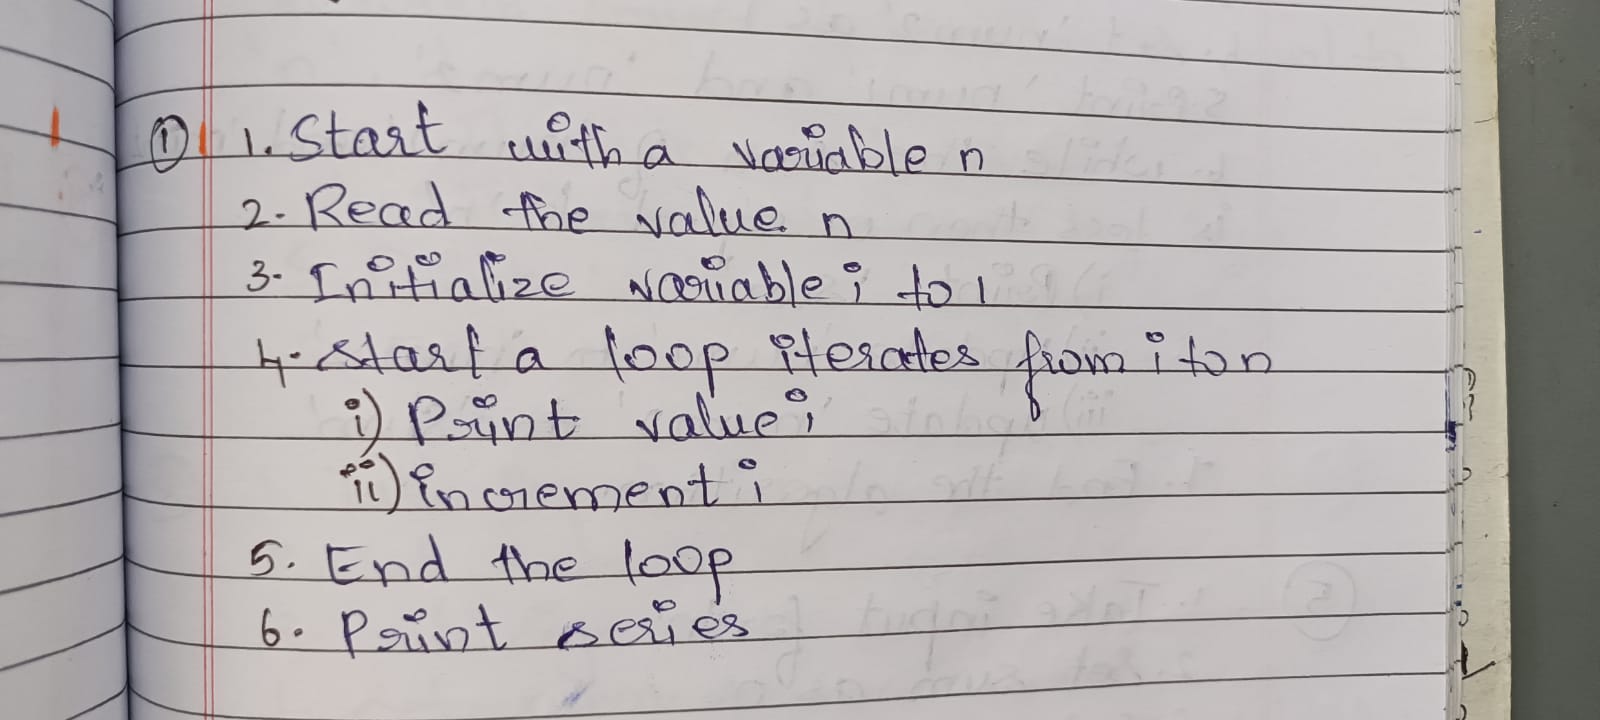 ① 1. Start with a variable n
2. Read the value n
3. Initialize variable i to 1
4. Start a loop iterates from i to n
i) Print value i
ii) increment i
5. End the loop
6. Print series